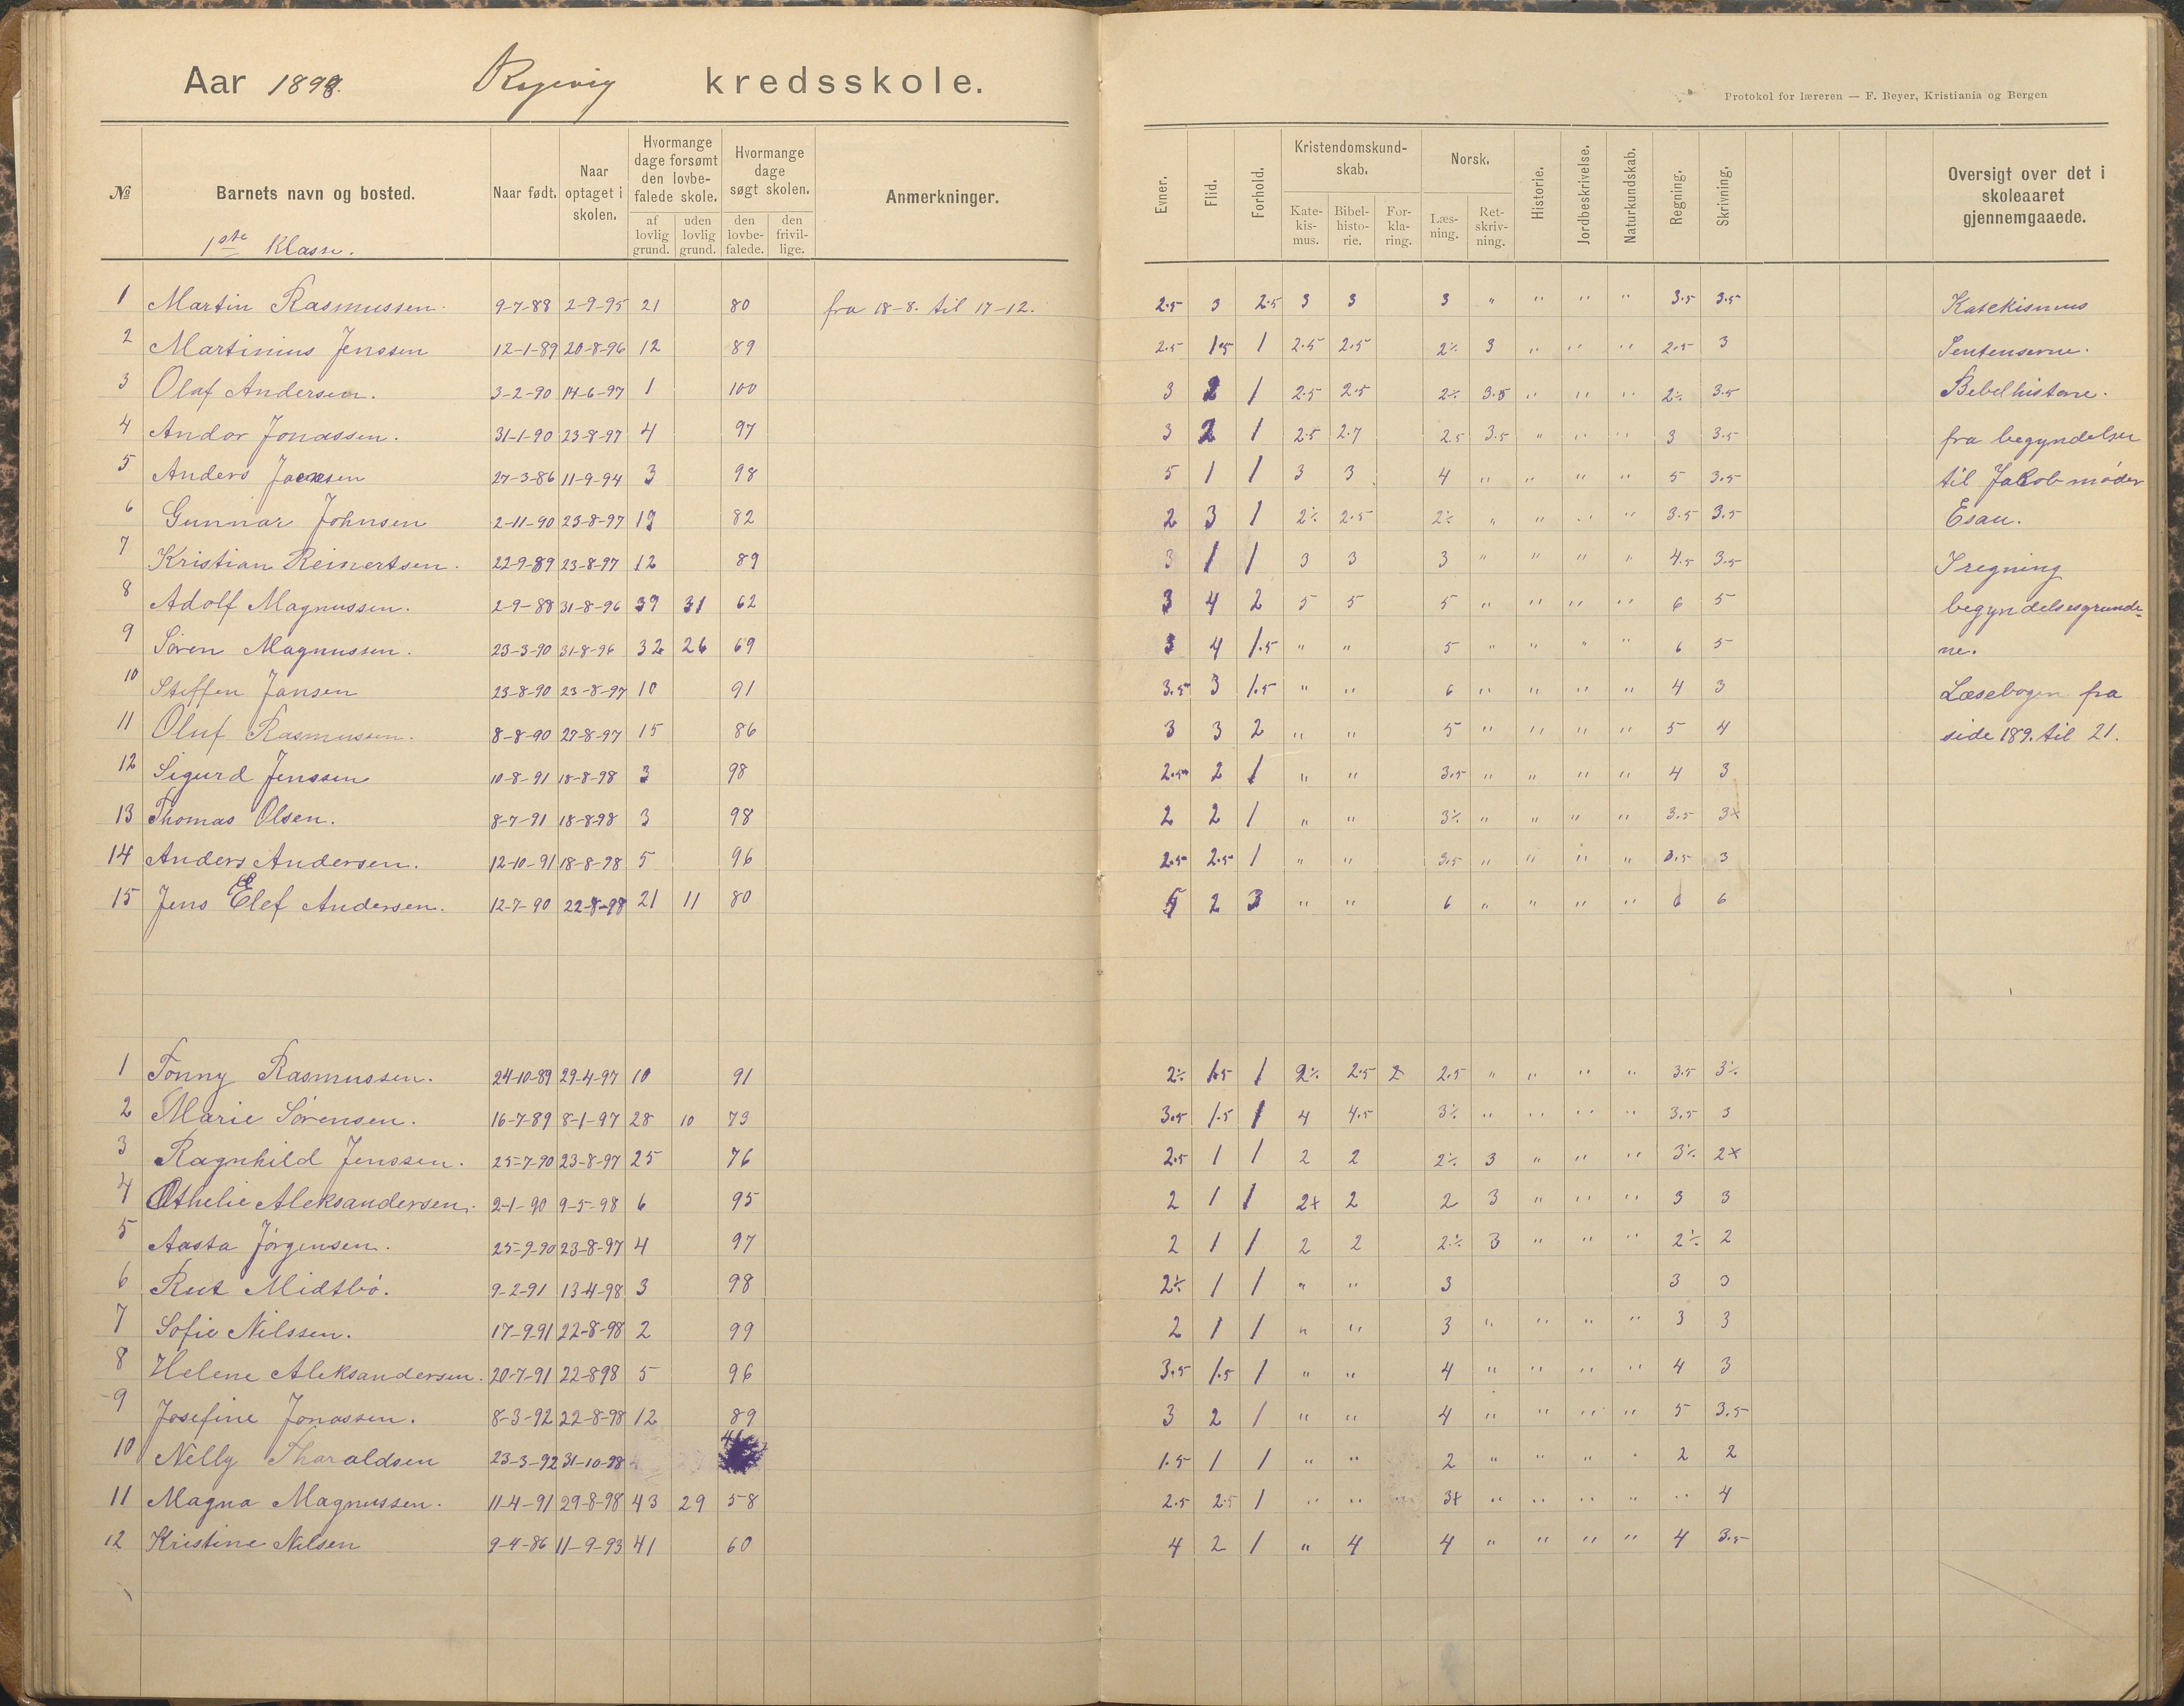 Aar 1898. Rægevig kredsskole.
Protokol for læreren — F. Beyer, Kristiania og Bergen
№ Barnets navn og bosted. Naar født. Naar optaget i skolen. Hvormange dage forsømt den lovbe- falede skole. af lovlig grund. uden lovlig grund. Hvormange dage søgt skolen. den lovbe- falede. den frivil- lige. Anmerkninger.
Evner. Flid. Forhold. Kristendomskund- skab. Kate- kis- mus. Bibel- histo- rie. For- kla- ring. Norsk. Læs- ning. Ret- skriv- ning. Historie. Jordbeskrivelse. Naturkundskab. Regning. Skrivning. Oversigt over det i skoleaaret gjennemgaaede.
1ste Klasse.
1 Martin Rasmussen. 9-7-88 2-9-95 21 80 fra 18-8. til 17-12. 2.5 3 2.5 3 3 3 " " " " 3.5 3.5 Katekismus
2 Martinius Jenssen 12-1-89 20-8-96 12 89 2.5 1.5 1 2.5 2.5 2÷ 3 " " " 2.5 3 Sentenserne.
3 Olaf Andersen. 3-2-90 14-6-97 1 100 3 2 1 2.5 2.5 2÷ 3.5 " " " 2÷ 3.5 Bibelhistorie.
4 Andor Jonassen. 31-1-90 23-8-97 4 97 3 2 1 2.5 2.7 2.5 3.5 " " " 3 3.5 fra begyndelsen
5 Anders 27-3-86 11-9-94 3 98 5 1 1 3 3 4 " " " " 5 3.5 til Jakob møder
6 Gunnar Johnsen 2-11-90 23-8-97 19 82 2 3 1 2÷ 2.5 2÷ " " " " 3.5 3.5 Esau.
7 Kristian Reinertsen. 22-9-89 23-8-97 12 89 3 1 1 3 3 3 " " " " 4.5 3.5 I regning
8 Adolf Magnussen. 2-9-88 31-8-96 39 31 62 3 4 2 5 5 5 " " " " 6 5 begyndelsesgrunde-
9 Søren Magnussen. 23-3-90 31-8-96 32 26 69 3 4 1.5 " " 5 " " " " 6 5 ne.
10 Steffen Jansen 23-8-90 23-8-97 10 91 3.5 3 1.5 " " 6 " " " " 4 3 Læsebogen fra
11 Oluf Rasmussen. 8-8-90 27-8-97 15 86 3 3 2 " " 5 " " " " 5 4 side 189. til 21.
12 Sigurd Jenssen 10-8-91 18-8-98 3 98 2.5 2 1 " " 3.5 " " " " 4 3
13 Thomas Olsen. 8-7-91 18-8-98 3 98 2 2 1 " " 3÷ " " " " 3.5 3×
14 Anders Andersen. 12-10-91 18-8-98 5 96 2.5 2.5 1 " " 3.5 " " " " 3.5 3
15 Jens Elef Andersen. 12-7-90 22-8-98 21 11 80 5 2 3 " " 6 " " " " 6 6
1 Tonny Rasmussen. 24-10-89 29-4-97 10 91 2÷ 1.5 1 2÷ 2.5 2 2.5 " " " " 3.5 3÷
2 Marie Sørensen. 16-7-89 8-1-97 28 10 73 3.5 1.5 1 4 4.5 3÷ " " " " 3.5 3
3 Ragnhild Jenssen. 25-7-90 23-8-97 25 76 2.5 1 1 2 2 2÷ 3 " " " 3÷ 2×
4 Othelie Aleksandersen. 2-1-90 9-5-98 6 95 2 1 1 2+ 2 2 3 " " " 3 3
5 Aasta Jørgensen. 25-9-90 23-8-97 4 97 2 1 1 2 2 2÷ 3 " " " 2÷ 2
6 Rut Midtbø. 9-2-91 13-4-98 3 98 2÷ 1 1 " " 3 3 3
7 Sofie Nilssen. 17-9-91 22-8-98 2 99 2 1 1 " " 3 " " " " 3 3
8 Helene Aleksandersen. 20-7-91 22-898 5 96 3.5 1.5 1 " " 4 " " " " 4 3
9 Josefine Jonassen. 8-3-92 22-8-98 12 89 3 2 1 " " 4 " " " " 5 3.5
10 Nelly Tharaldsen 23-3-92 31-10-98 41 1.5 1 1 " " 2 " " " " 2 2
11 Magna Magnussen. 11-4-91 29-8-98 43 29 58 2.5 2.5 1 " " " 3+ " " " " " 4
12 Kristine Nilsen 9-4-86 11-9-93 41 60 4 2 1 " 4 4 " " " " 4 3.5